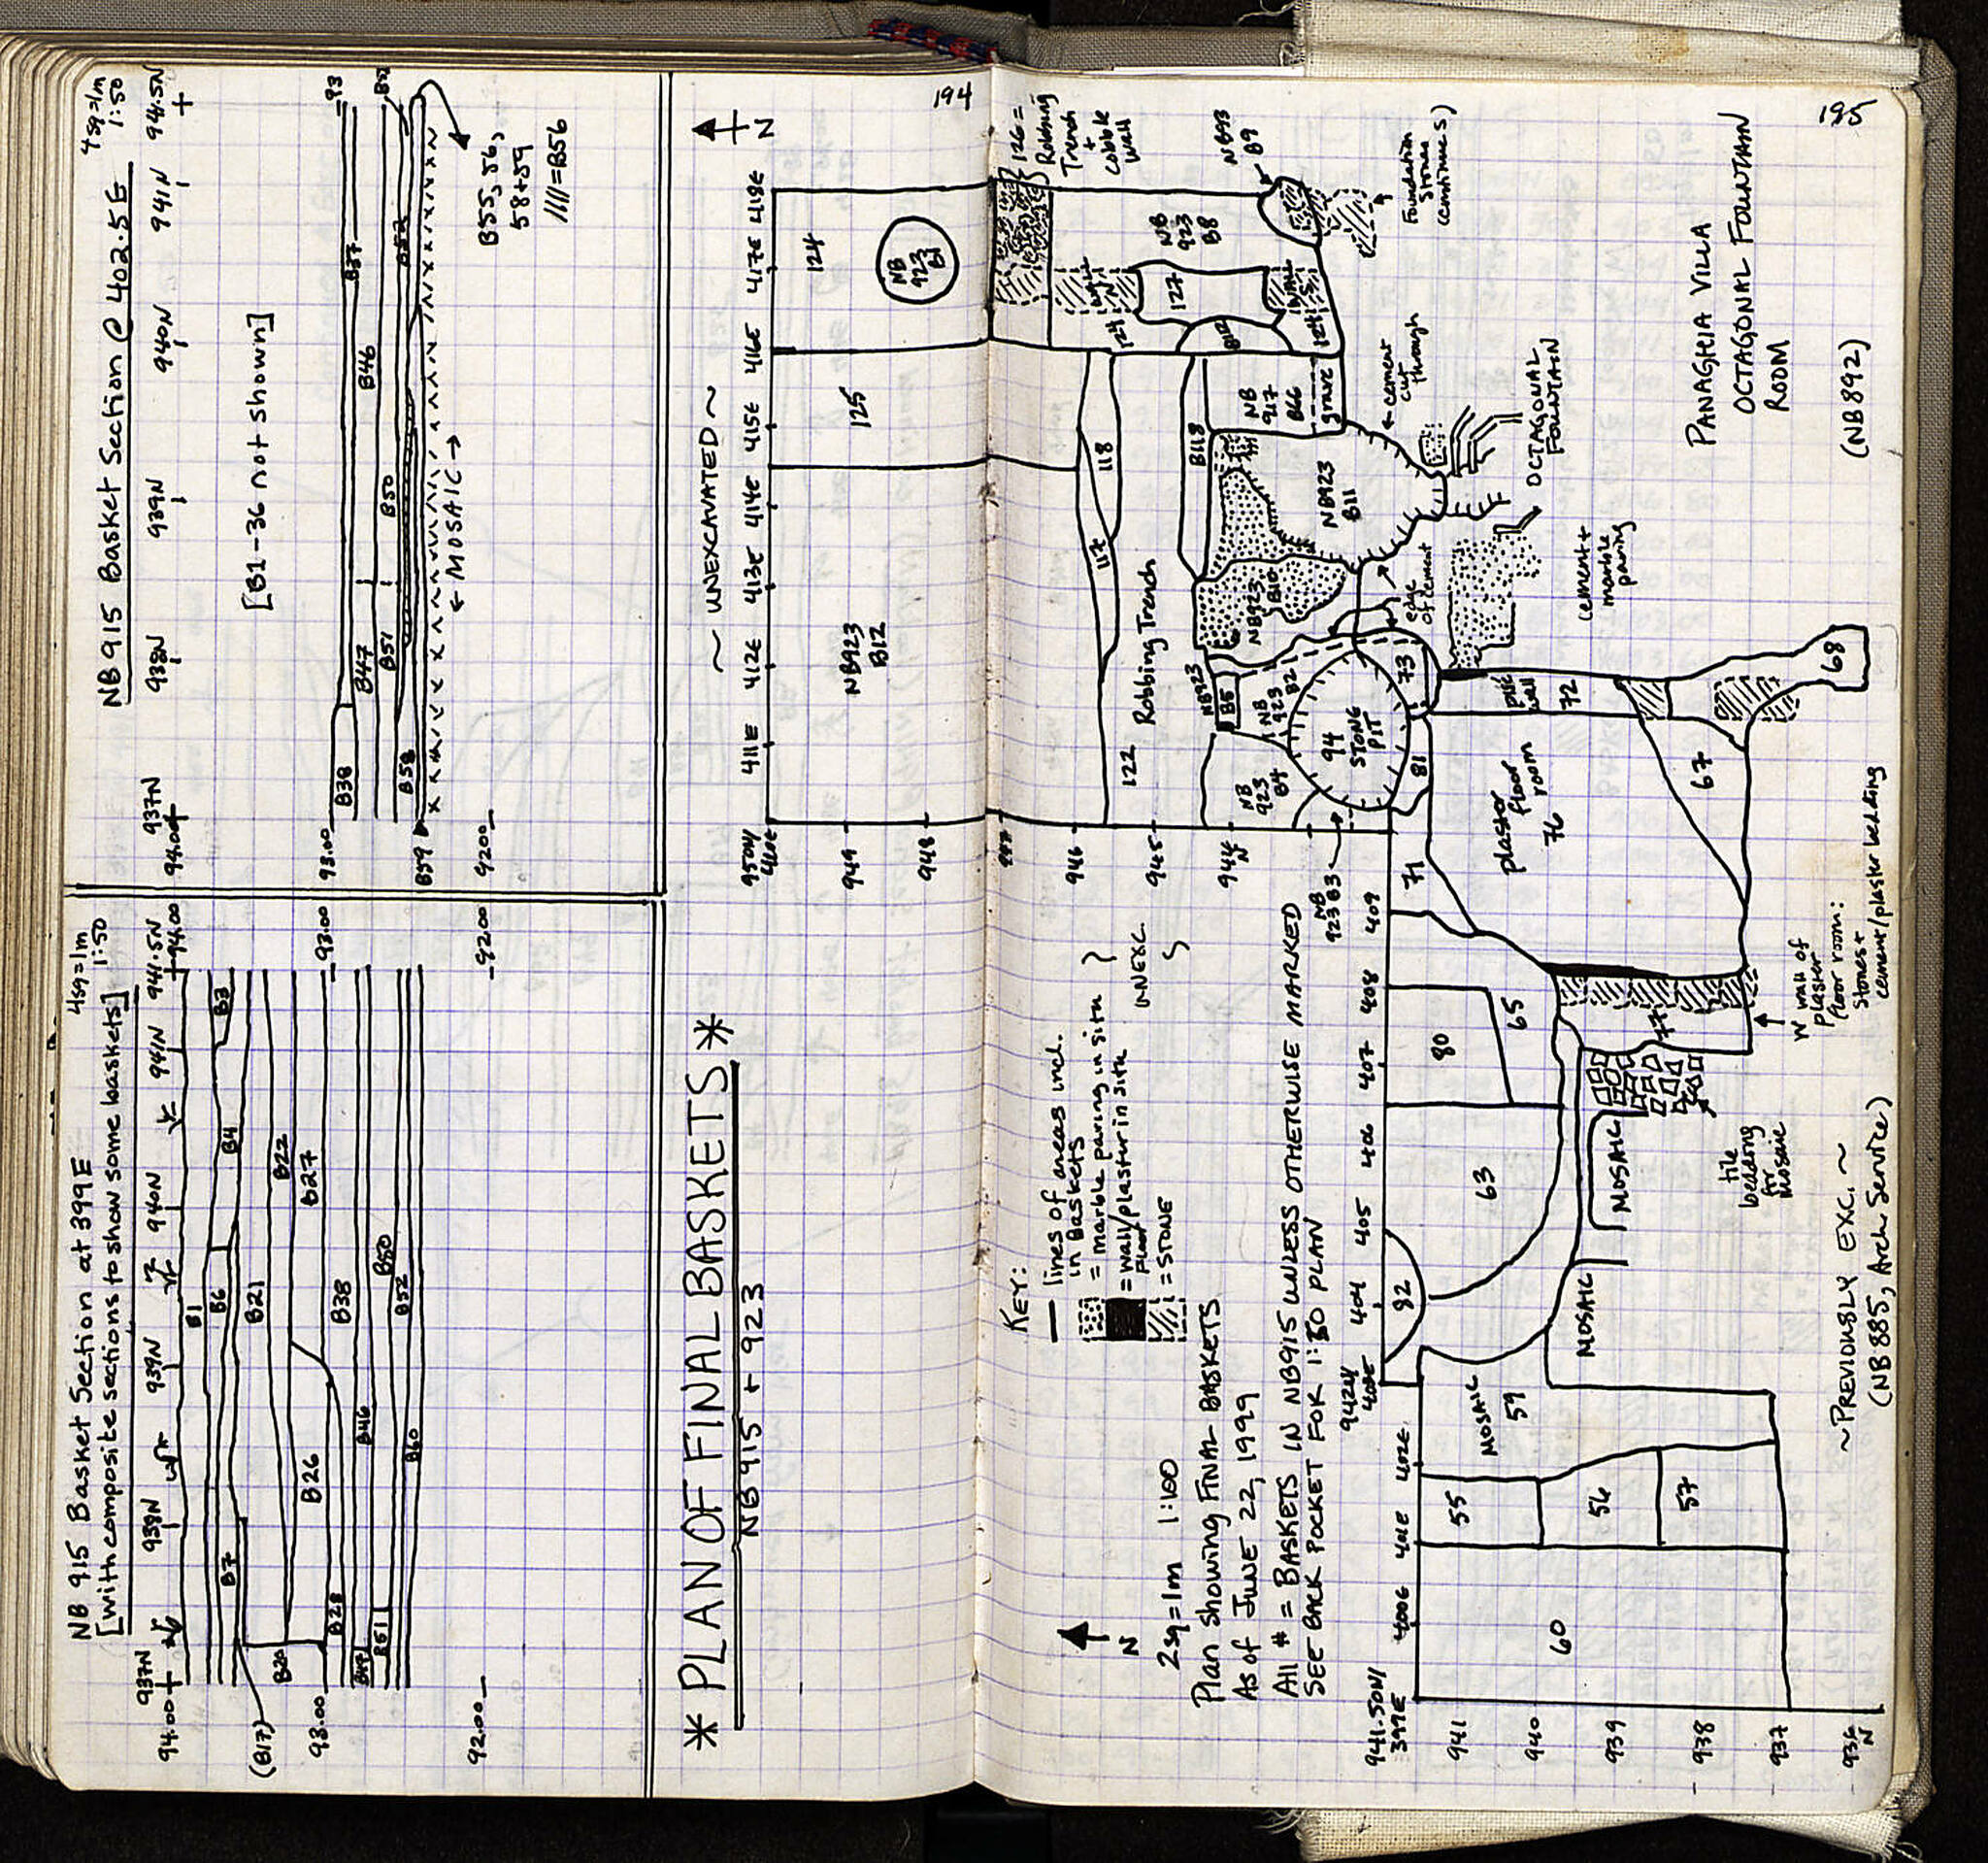 NB 915 Basket Section at 399E
[with composite sections to show some baskets]
4sq=1m
1:50
937N
938N
939N
940N
941N
941.5N
94.00
94.00
B1
B3
B4
B6
B7
(B17)
B20
B21
B22
B26
B27
B28
B38
B46
B50
B51
B52
B60
93.00
93.00
92.00
92.00
NB 915 Basket Section @ 402.5E
4sq=1m
1:50
937N
938N
939N
940N
941N
941.5N
94.00
[B1-36 not shown]
93.00
93
B38
B37
B47
B46
B51
B50
B52
B58
B59
← MOSAIC →
92.00
B55, 56,
58+59
////=B56
* PLAN OF FINAL BASKETS *
NB 915 + 923
194
N
~ UNEXCAVATED ~
950N/
410E
411E
412E
413E
414E
415E
416E
417E
418E
949
948
947
946
945
944
N
NB923
B12
125
124
NB
923
B1
126 =
Robbing
Trench
+
cobble
wall
117
118
122
Robbing Trench
B118
127
124
124
NB
923
B8
NB923
B9
Foundation
Stones
continue(s)
NB
917
B66
grave
← cement
cut
through
NB923
B11
NB923
B10
NB923
B5
NB
923
B2
NB
923
B4
NB
923 B3
94
STONE
PIT
73
81
edge
of cement
OCTAGONAL
FOUNTAIN
cement +
marble
paving
PANAGHIA VILLA
OCTAGONAL FOUNTAIN
ROOM
(NB892)
195
KEY:
lines of areas incl.
in Baskets
= marble paving in situ
= wall/plaster in situ
floor
= STONE
UNEXC.
N
2sq=1m 1:100
Plan showing FINAL BASKETS
As of JUNE 22, 1999
All # = BASKETS IN NB915 UNLESS OTHERWISE MARKED
SEE BACK POCKET FOR 1:50 PLAN
941.50N/
399E
400E
401E
402E
942N/
403E
404
405
406
407
408
409
941
940
939
938
937
936
N
60
55
56
57
MOSAIC
59
82
63
80
65
71
MOSAIC
MOSAIC
77
plaster
floor
room
76
72
67
68
tile
bedding
for
Mosaic
N wall of
plaster
floor room:
stones +
cement/plaster bedding
~PREVIOUSLY EXC.~
(NB 885, Arch. Service)